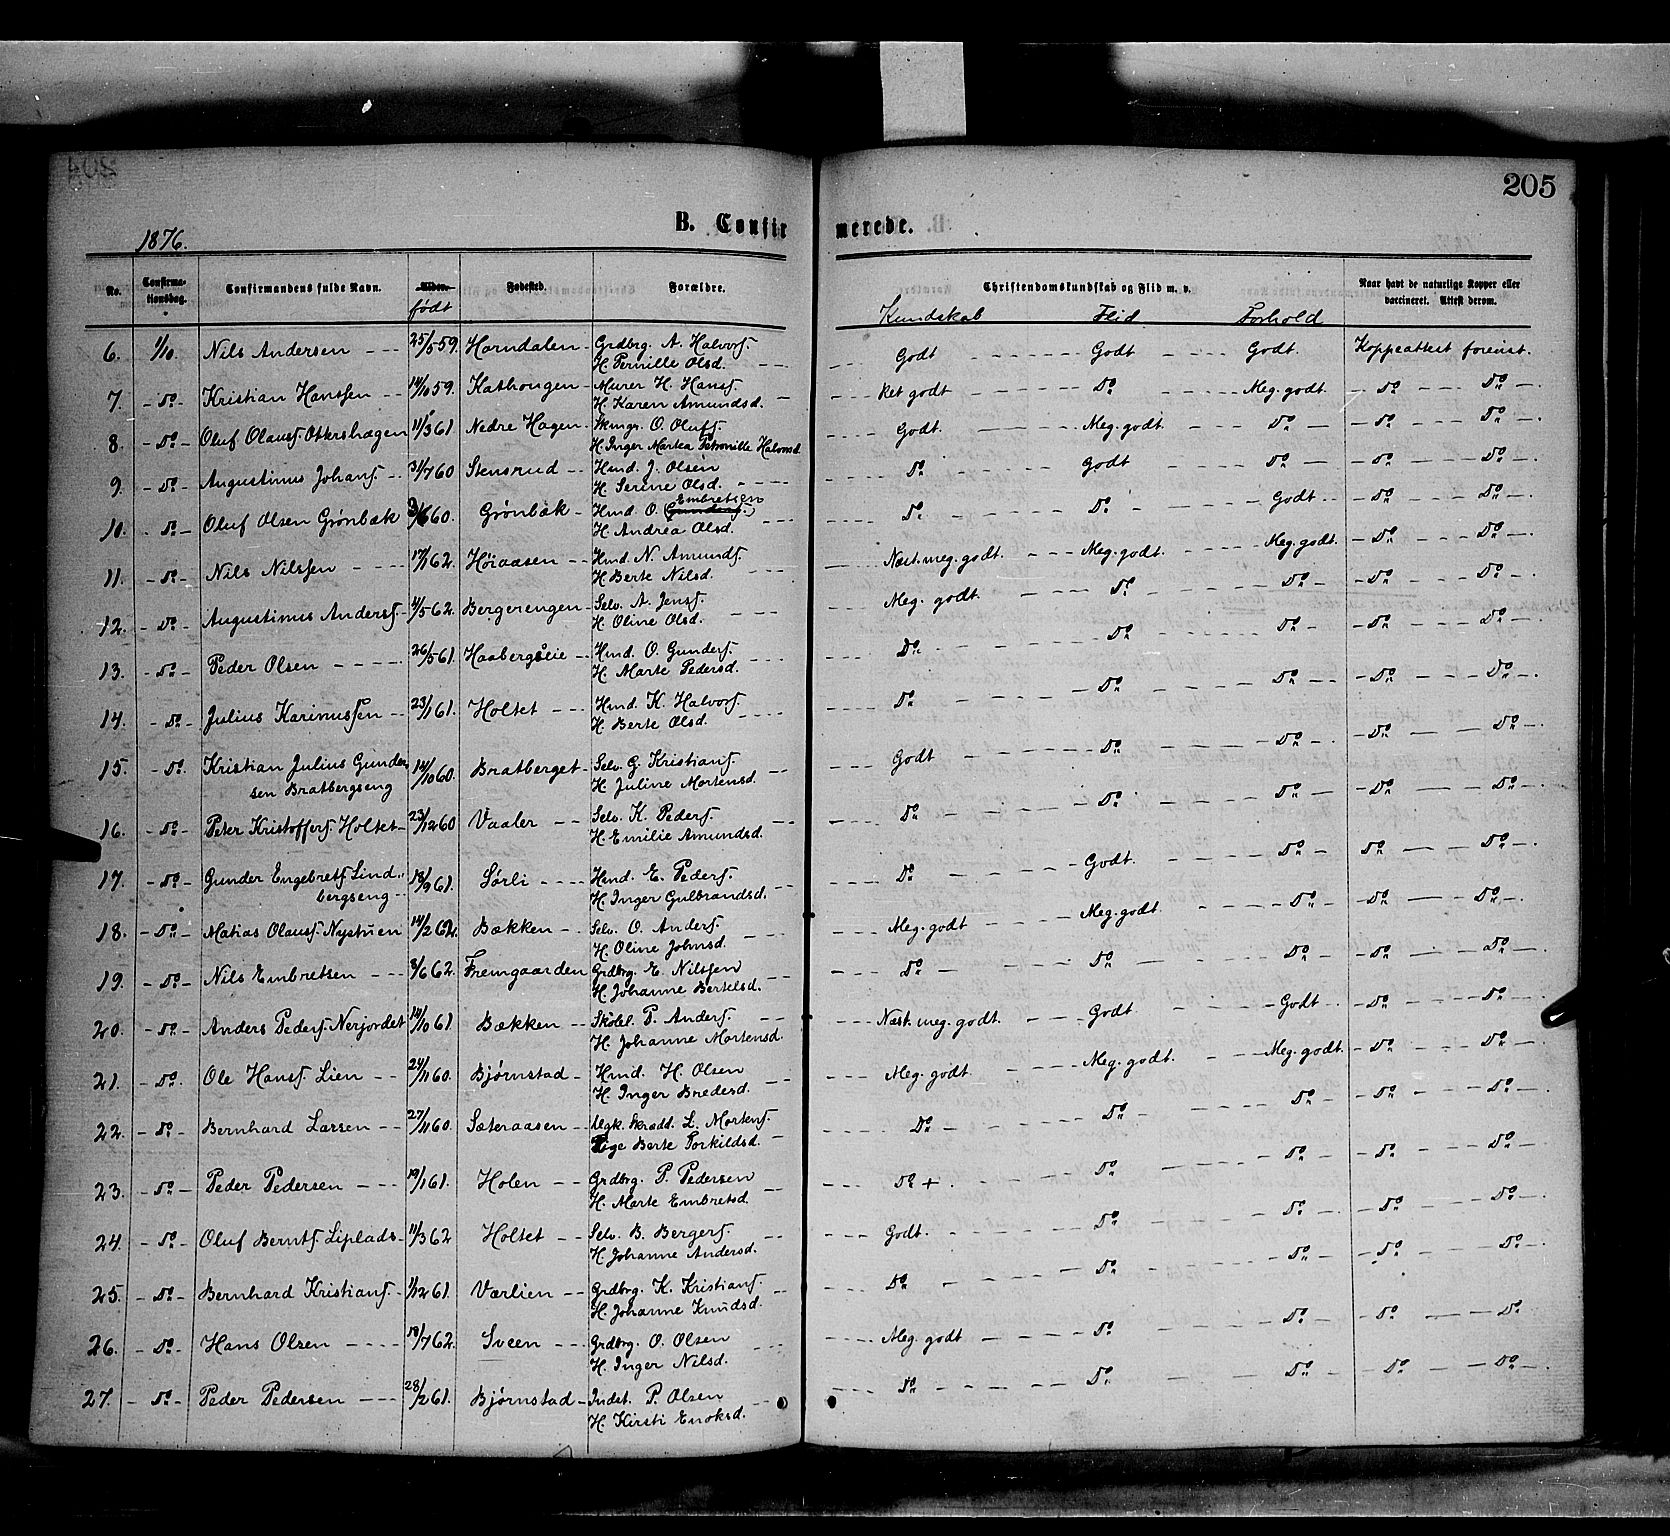 205
1876.
B. Confirmerede.
No. Confirmationsdag. Confirmandens fulde Navn. Alder. født Fødested. Forældre. Christendomskundskab og Flid m. v. Kundskab Flid Forhold Naar havt de naturlige Kopper eller vaccineret. Attest derom.
6. 1/10. Nils Andersen 25/5 59. Horndalen Grdbrg. A. Halvors. Godt Godt Godt. Koppeattest forevist.
H. Pernille Olsd.
7. Do Kristian Hanssen 14/10 59. Kathongen Murer H. Hans. Ret godt Do Meg. godt Do Do
H. Karen Amundsd.
8. Do Oluf Olaus. Otkershagen 11/3 61 Nedre Hagen O. Olufs. Godt. Meg. godt Do Do Do
H. Inger Martea Petronille Halvorsd.
9. Do Augustinus Johans. 31/7 60 Stensrud Hmd. J. Olsen Do Godt Do Do Do
H. Serine Olsd.
10. Do Oluf Olsen Grønbæk 60. Grønbæk Hmd. O. Embretsen Do Do Godt Do Do
H. Andrea Olsd.
11. Do Nils Nilssen 17/1 62. Høiaasen Hmd. N. Amunds. Næst. meg. godt. Meg. godt. Meg. godt. Do Do
H. Berte Nilsd.
12. Do Augustinus Anders. 4/5 62. Bergerengen Selv. A. Jens. Meg. godt Do Do Do Do
H. Oline Olsd.
13. Do Peder Olsen 26/5 61. Haabergseie Hmd. O. Gunders. Do Do Do Do Do
H. Marte Pedersd.
14. Do Julius Karinussen 23/1 61. Holtet Hmd. K. Halvors. Do Do Do Do Do
H. Berte Olsd.
15. Do Kristian Julius Gunder- 14/10 60. Bratberget Selv. G. Kristians. Godt Do Do Do Do
sen Bratbergseng H. Juline Mortensd.
16. Do Peter Kristoffers. Holtet 23/12 60 Vaaler Selv. K. Peders. Do Do Do Do Do
H. Emilie Amundsd.
17. Do Gunder Engebrets. Lind- 13/9 61. Sørli Hmd. E. Peders. Do Godt. Do Do Do
bergseng H. Inger Gulbrandsd.
18. Do Matias Olaus. Nystuen 14/2 62. Bækken Selv. O. Anders. Meg. godt Meg. godt Do Do Do
H. Oline Johnsd.
19. Do Nils Embretsen 3/6 62. Fremgaarden Grdbrg. E. Nilssen Do Do Do Do Do
H. Johanne Bertelsd.
20. Do Anders Peders. Nerjordet 14/10 61 Bækken Skolel. P. Anders. Næst. meg. godt. Godt Godt Do Do
H. Johanne Mortensd.
21. Do Ole Hans. Lien 24/11 60. Bjørnstad Hmd. H. Olsen Meg. godt Meg. godt Meg. godt. Do Do
H. Inger Bredesd.
22. Do Bernhard Larsen 27/11 60. Sæteraasen Ugk. Skrædd. L. Mortens. Do Do Do Do Do
Pige Berte Torkildsd.
23. Do Peder Pedersen 19/1 61. Holen Grdbrg. P. Pedersen Do + Do Do Do Do
H. Marte Embretsd.
24. Do Oluf Bernts. Liplads 11/3 62 Holtet Selv. B. Bergers. Godt. Do Do Do Do
H. Johanne Andersd.
25. Do Bernhard Kristians. 1/12 61. Værlien Grdbrg. K. Kristians. Do Do Do Do Do
H. Johanne Knudsd.
26. Do Hans Olsen 18/7 62. Sveen Grdbrg. O. Olsen Meg. godt Do Do Do Do
H. Inger Nilsd.
27. Do Peder Pedersen 28/2 61. Bjørnstad Indst. P. Olsen Do Do Do Do Do
H. Kirsti Enoksd.